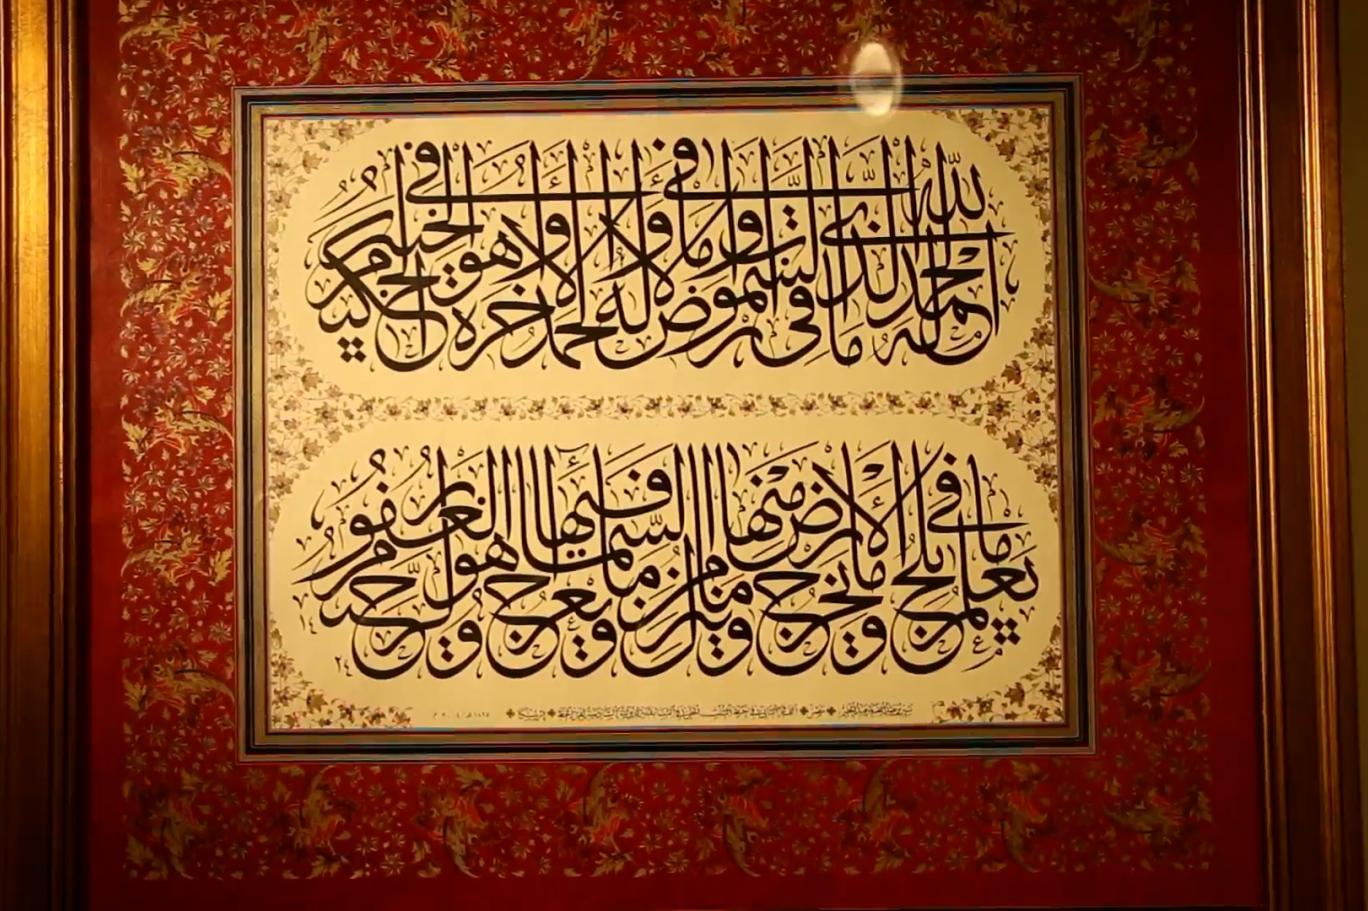 الحمد لله الذي له ما في السموت وما في الارض وله الحمد في الاخرة وهو الحكيم الخبير
يعلم ما يلج في الارض وما يخرج منها وما ينزل من السماء وما يعرج فيها وهو الرحيم الغفور